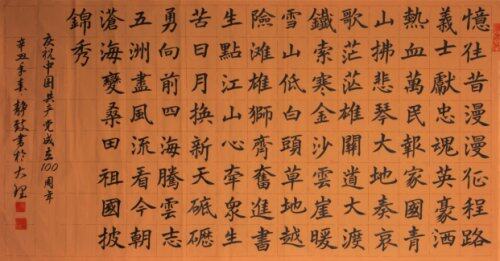 憶往昔漫漫征程路
義士獻忠魂英豪洒
熱血萬民報家國青
山拂悲琴大地奏哀
歌茫茫雄關道大渡
鐵索寒金沙雲崖暖
雪山低白頭草地越
險灘雄獅齊奮進書
生點江山心牽衆生
苦日月換新天砥礪
勇向前四海騰雲志
五洲盡風流看今朝
滄海變桑田祖國披
錦秀
庆祝中国共产党成立100周年
辛丑年春静書於大理